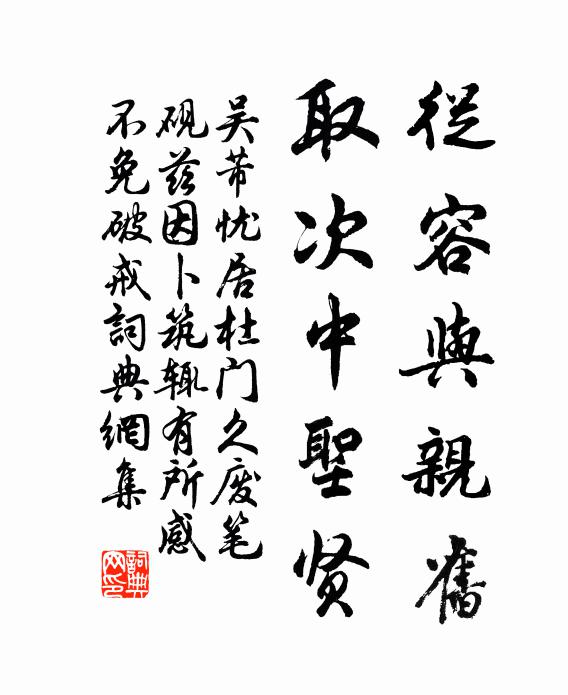 從容與親舊
取次中聖贤
吴芾忧居杜门久废笔
砚兹因卜筑辄有所感
不免破戒詞典網集
詞典网印